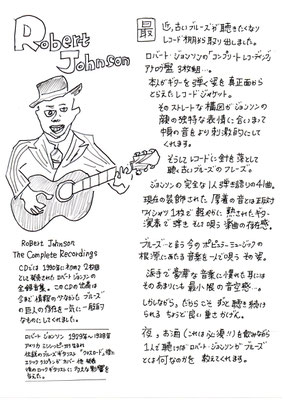 Robert
Johnson
最近、古いブルーズが聴きたくなり
レコード棚から取り出しました。
ロバート・ジョンソンの「コンプリート・レコーディングス」
アナログ盤3枚組...。
本人がギターを弾く姿を真正面から
とらえたレコードジャケット。
そのストレートな構図がジョンソンの
顔の独特な表情に合いまって
中身の音をより刺激的にして
くれます。
そうしてレコードに針を落として
聴く古いブルーズのフレーズ。
ジョンソンの完全な1人弾き語りの41曲。
現在の装飾された厚着の音とは正反対
ワイシャツ1枚で軽やかに、熱されたギター
演奏で弾きそして唄う楽曲の存在感。
ブルーズと言う今のポピュラーミュージックの
根源にあたる音楽を一人で唄うその姿。
派手で豪華な音楽に慣れた耳には
そのあまりにも最小限の音空感...。
しかしながら、だからこそずと聴き続け
られるちょうど良い重さかげん。
夜、お酒(これは必須!!)を飲みながら
1人で聴けばロバート・ジョンソンがブルーズ
とは何なのかを教えてくれます。
Robert Johnson
The Complete Recordings
CDでは、1990年に初めて2枚組
として発売されたロバート・ジョンソンの
全録音集。このCDの出現は
今まで情報の少なかったブルーズ
の巨人の存在を一気に一般的
なものにしてくれました。
ロバート・ジョンソン 1911年〜1938年
アメリカ ミシシッピー州生まれ
伝説のブルーズギタリスト
エリック・クラプトンがカバー
後のロックギタリストに多大な影響を
与えた。